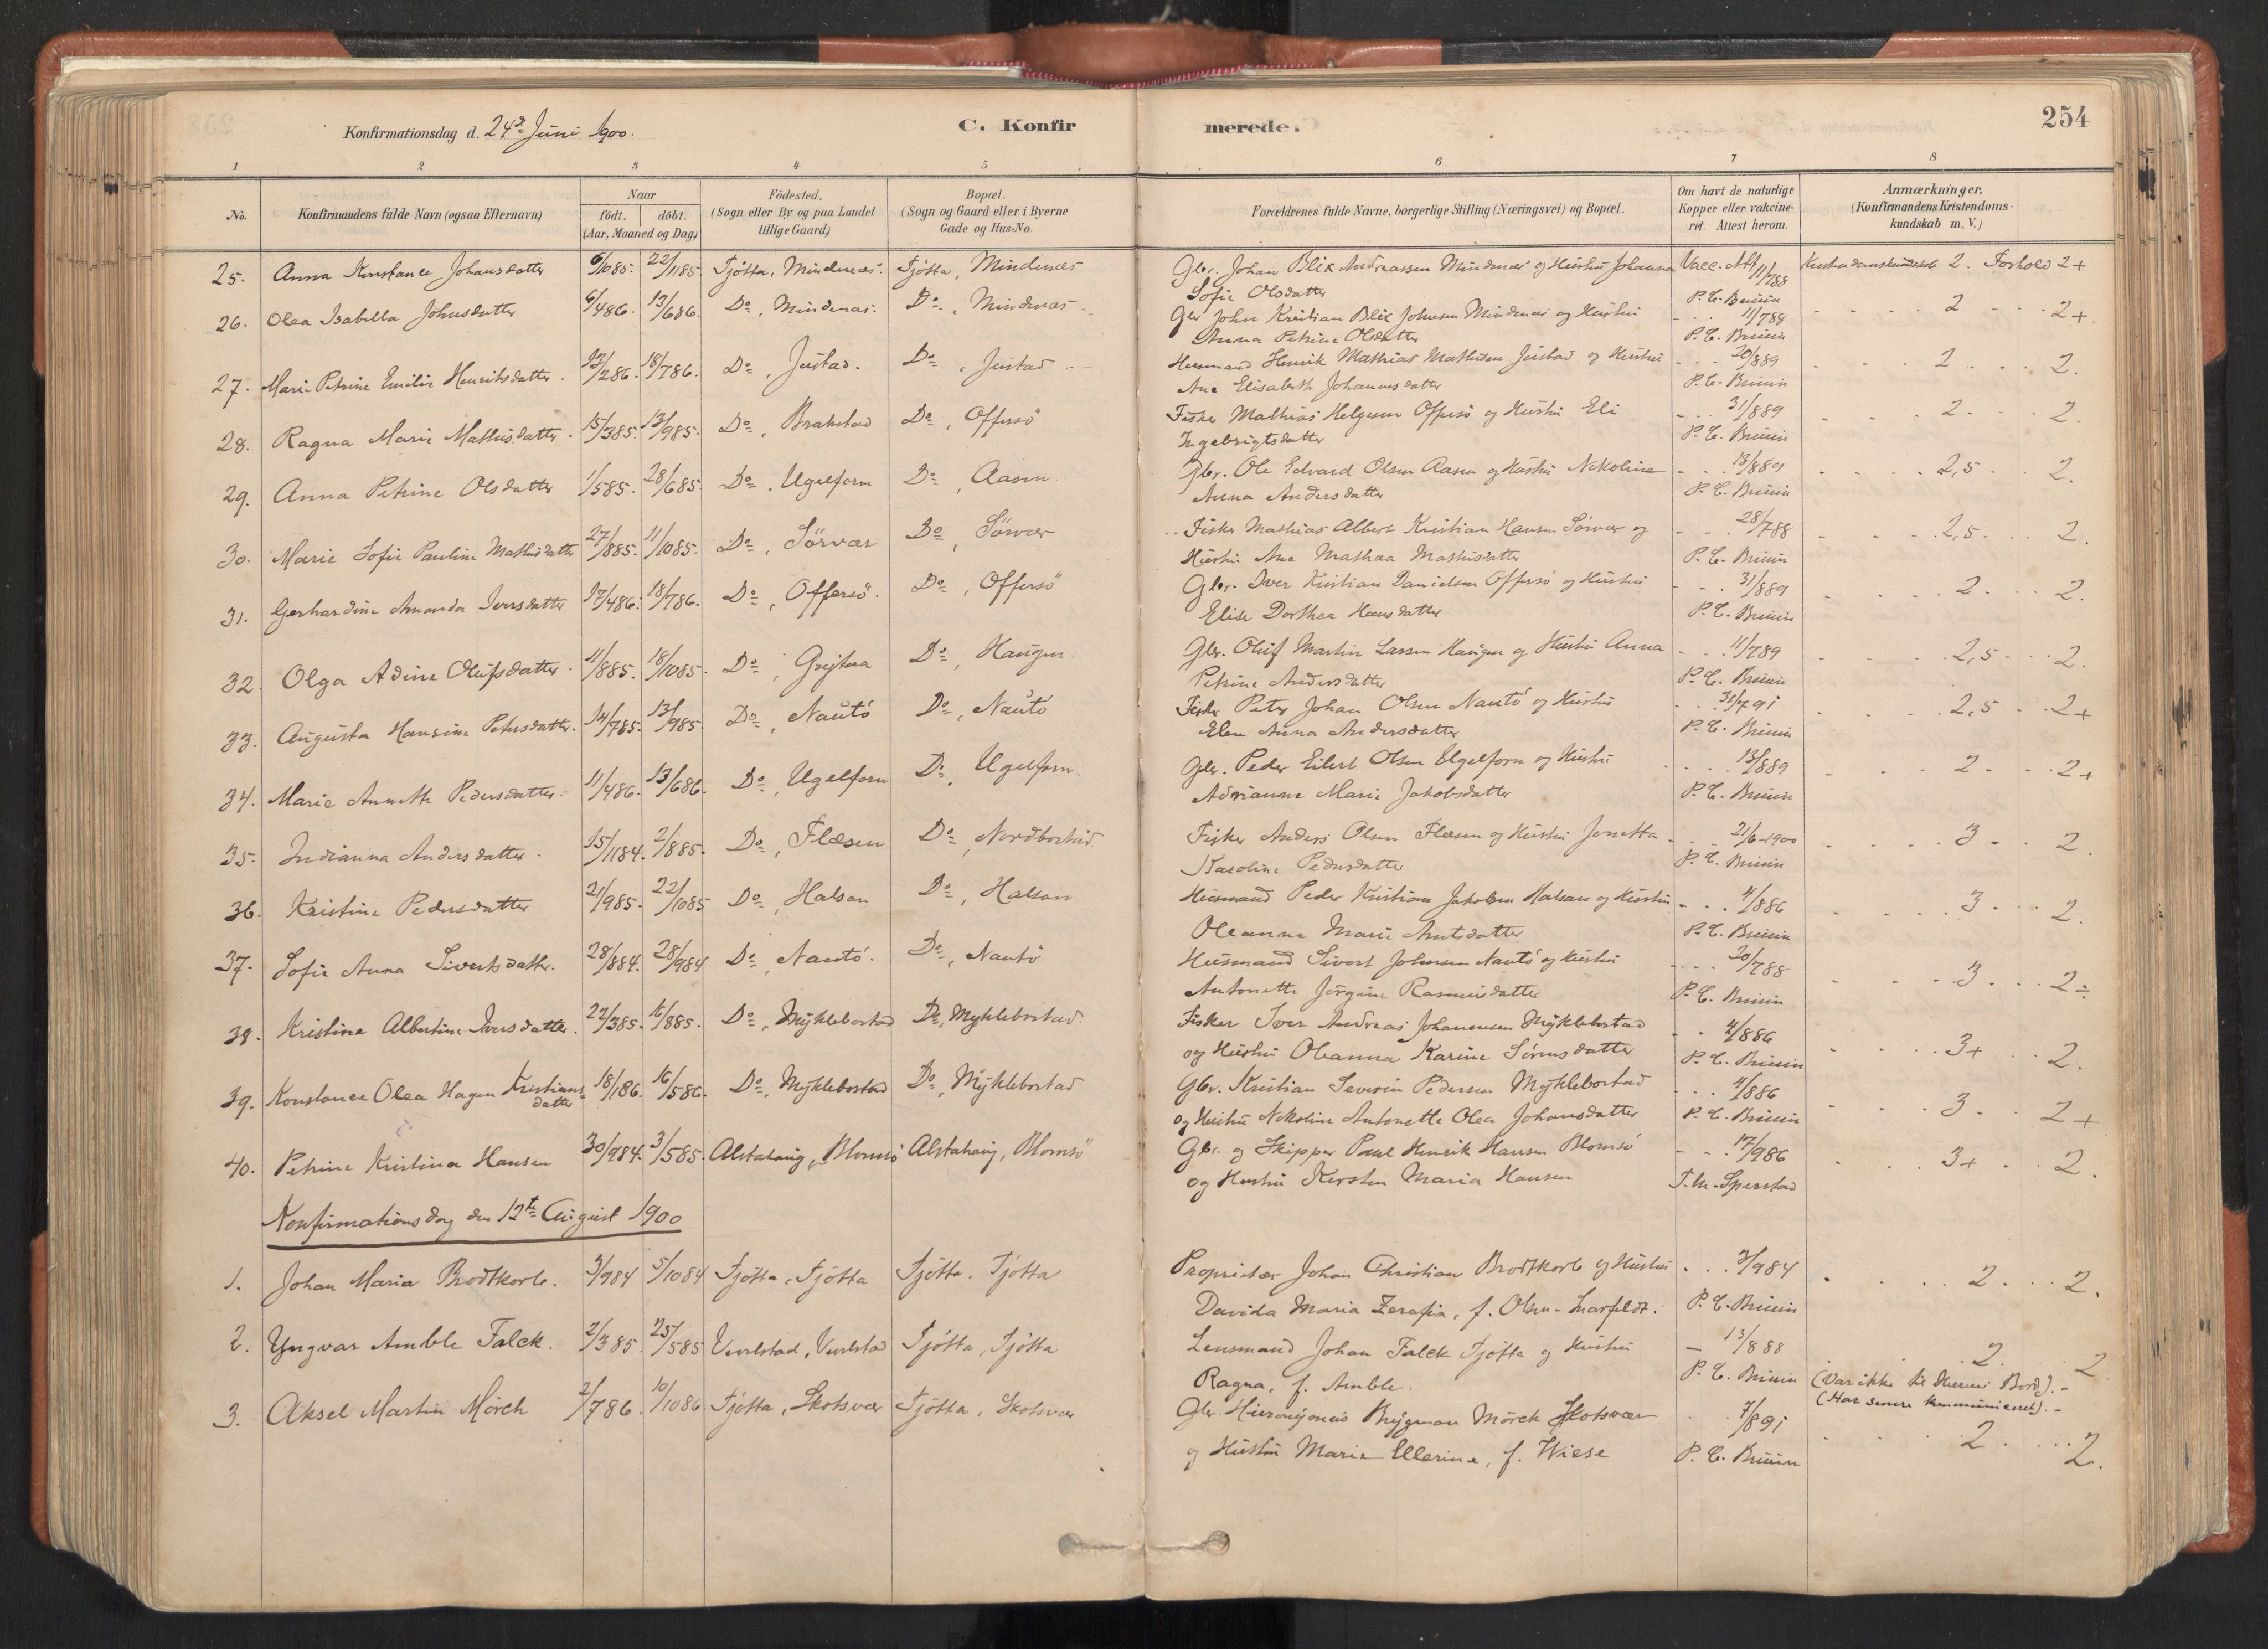 Konfirmationsdag d. 24de Juni 1900.
C. Konfirmerede.
254
1 2 3 4 5 6 7 8
No.
Konfirmandens fulde Navn (ogsaa Efternavn)
Naar
födt. döbt.
(Aar, Maaned og Dag)
Födested.
(Sogn eller By og paa Landet
tillige Gaard)
Bopæl.
(Sogn og Gaard eller i Byerne
Gade og Hus-No.
Forældrenes fulde Navne, borgerlige Stilling (Næringsvei) og Bopæl.
Om havt de naturlige
Kopper eller vakcine-
ret. Attest herom.
Anmærkninger.
(Konfirmandens Kristendoms-
kundskab m. V.)
25. Anna Konstance Johansdatter 6/1085. 22/1185. Tjötta, Mindenæs. Tjötta, Mindenæs Gbr. Johan Blix Andreassen Mindenæs og Hustru Johanna Vacc. Att 11/788 Kristendomskundskab 2. Forhold 2+
Sofie Olsdatter P. C. Brüün
26. Olea Isabella Johnsdatter 6/486. 13/686. Do, Mindenæs. Do, Mindenæs Gbr John Kristian Blix Johnsen Mindenæs og Hustru 11/788 2 2+
Anna Petrine Olsdatter P. C. Brüün
27. Marie Petrine Emilie Henriksdatter. 12/286. 18/786. Do, Jüstad. Do, Jüstad Husmand Henrik Mathias Mathisen Jüstad og Hustru 20/889 2 2.
Ane Elisabeth Johannesdatter P. C. Brüün
28. Ragna Marie Mathisdatter. 15/385. 13/985. Do, Brakstad Do, Offersö Fisker Mathias Helgesen Offersö og Hustru Eli 31/889 2. 2.
Ingebrigtsdatter P. C. Brüün
29. Anna Petrine Olsdatter 1/585. 28/685. Do, Ugelforn Do, Aasen Gbr. Ole Edvard Olsen Aasen og Hustru Nikoline 13/889 2,5 2.
Anna Andersdatter P. C. Brüün
30. Marie Sofie Pauline Mathisdatter 27/885. 11/1085. Do, Sörvær Do, Sörvær Fisker Mathias Albert Kristian Hansen Sörvær og 28/788 2,5 2.
Hustru Ane Mathea Mathisdatter P. C. Brüün
31. Gerhardine Amanda Iversdatter 17/486. 18/786. Do, Offersö. Do, Offersö Gbr. Iver Kristian Danielsen Offersö og Hustru 31/889 2 2.
Elise Dorthea Hansdatter P. C. Brüün
32. Olga Adine Olufsdatter. 11/885. 18/1085. Do, Do, Haugen Gbr. Oluf Martin Larsen Haugen og Hustru Anna 11/789 2,5 2.
Petrine Andersdatter P. C. Brüün
33. Augusta Hansine Petersdatter. 14/785. 13/985. Do, Nautö Do, Nautö Fisker Peter Johan Olsen Nautö og Hustru 31/791 2,5 2+
Elen Anna Andersdatter P. C. Brüün
34. Marie Annette Pedersdatter. 11/486. 13/686. Do, Ugelforn Do, Ugelforn. Gbr. Peder Eilert Olsen Ugelforn og Hustru 13/889 2 2+
Adrianne Marie Jakobsdatter P. C. Brüün
35. Indianna Andersdatter. 15/1184. 2/885. Do, Flæsen Do, Nordbostad. Fisker Anders Olsen Flæsen og Hustru Jonetta 21/6-1900 3 2.
Karoline Pedersdatter P. C. Brüün
36. Kristine Pedersdatter 21/985. 22/1085 Do, Halsan Do, Halsan Husmand Peder Kristian Jakobsen Halsan og Hustru 4/886 3 2.
Oleanna Marie Antsdatter P. C. Brüün
37. Sofie Anna Sivertsdatter. 28/884. 28/984 Do, Nautö. Do, Nautö Husmand Sivert Johnsen Nautö og Hustru 20/788 3 2÷
Antonette Jörgine Rasmusdatter P. C. Brüün
38. Kristine Albertine Iversdatter. 22/385. 16/885. Do, Myklebostad Do, Myklebostad. Fisker Iver Andreas Johannesen Myklebostad 4/886 3+ 2.
og Hustru Oleanna Karine Sörensdatter P. C. Brüün
39. Konstance Olea Hagen Kristians- 18/186. 16/586. Do, Myklebostad Do, Myklebostad Gbr. Kristian Severin Pedersen Myklebostad 4/886 3 2+
datter og Hustru Nikoline Antonette Olea Johansdatter P. C. Brüün
40. Petrine Kristina Hansen 30/984. 3/585. Alstahaug, Blomsö Alstahaug, Blomsö Gbr. og Skipper Paul Henrik Hansen Blomsö 17/986 3+ 2.
og Hustru Kersten Maria Hansen T. M. Sperstad
Konfirmationsdag den 12te August 1900
1. Johan Maria Brodtkorb. 3/984 5/1084 Tjötta, Tjötta Tjötta, Tjötta Proprietær Johan Christian Brodtkorb og Hustru 3/984 2 2.
Davida Maria Zerafia, f. Olsen-Snarfeldt. P. C. Brüün
2. Yngvar Amble Falck. 2/385 25/585 Vevelstad, Vevelstad Tjötta, Tjötta Lensmand Johan Falck Tjötta og Hustru 13/888 2 2
Ragna, f. Amble. P. C. Brüün (Var ikke til Herrens Bord).-
(Har senere kommuniceret).-
3. Aksel Martin Mörch 2/786 10/1086 Tjötta, Skotsvær Tjötta, Skotsvær Gbr. Hieronymus Brygman Mörch Skotsvær 7/891 2 2.
og Hustru Marie Ellerine, f. Wiese P. C. Brüün